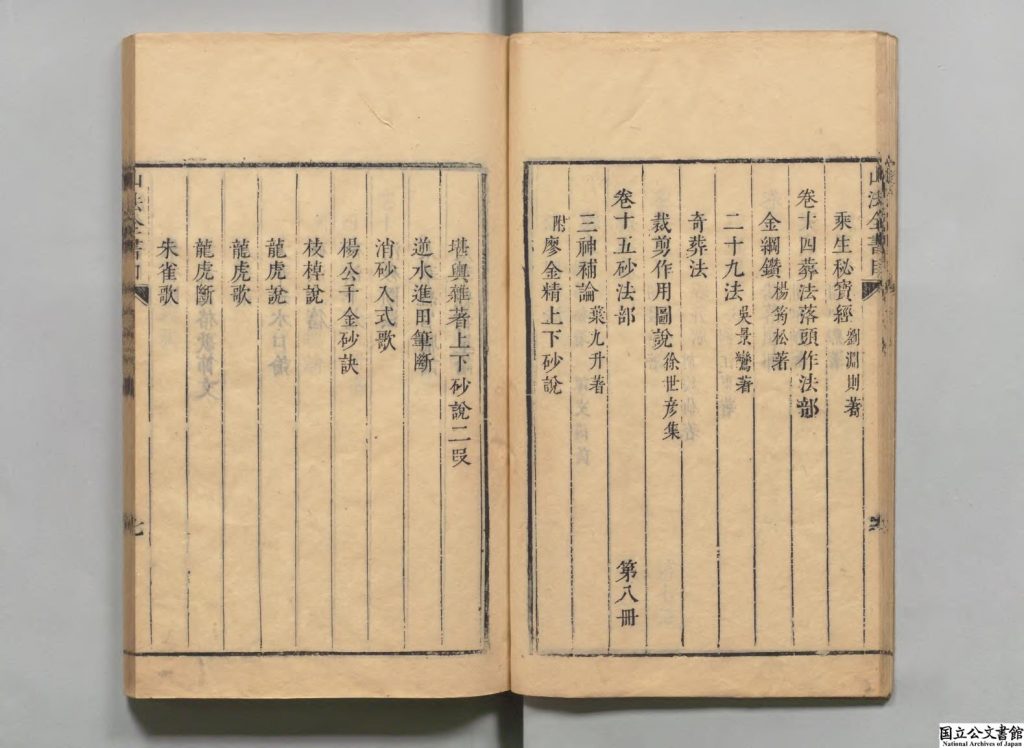 乘生秘寶經 劉淵則著
卷十四葬法落頭作法部
金綱鑽 楊筠松著
二十九法 吳景鸞著
奇葬法
裁剪作用圖說 徐世彦集
卷十五砂法部 第八冊
三神補論 葉九升著
附 廖金精上下砂說
堪輿雜著上下砂說二叚
逆水進田筆斷
消砂入式歌
楊公千金砂訣
枝棹說
龍虎說
龍虎歌
龍虎斷
朱雀歌
山法全書目
七
国立公文書館
National Archives of Japan